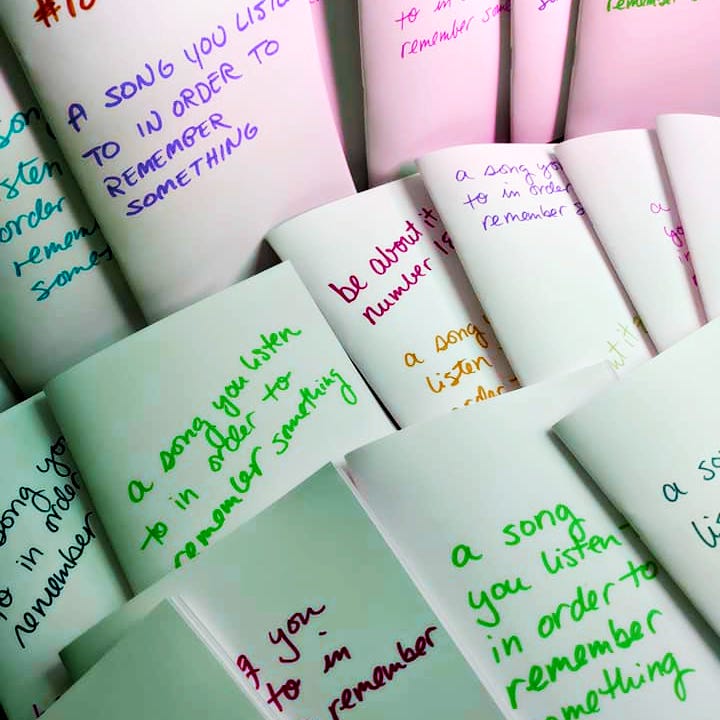 #10
A SONG YOU LISTEN
TO IN ORDER TO
REMEMBER
SOMETHING
to in
remember some
remember
song
listen
order
remem
some
a song you
to in order
remember s
be about it
number
a song
listen
order
a
a song you listen
to in order to
remember something
song you
to in order
remember
you
to in
remember
a song
you listen
in order to
remember
something
a so